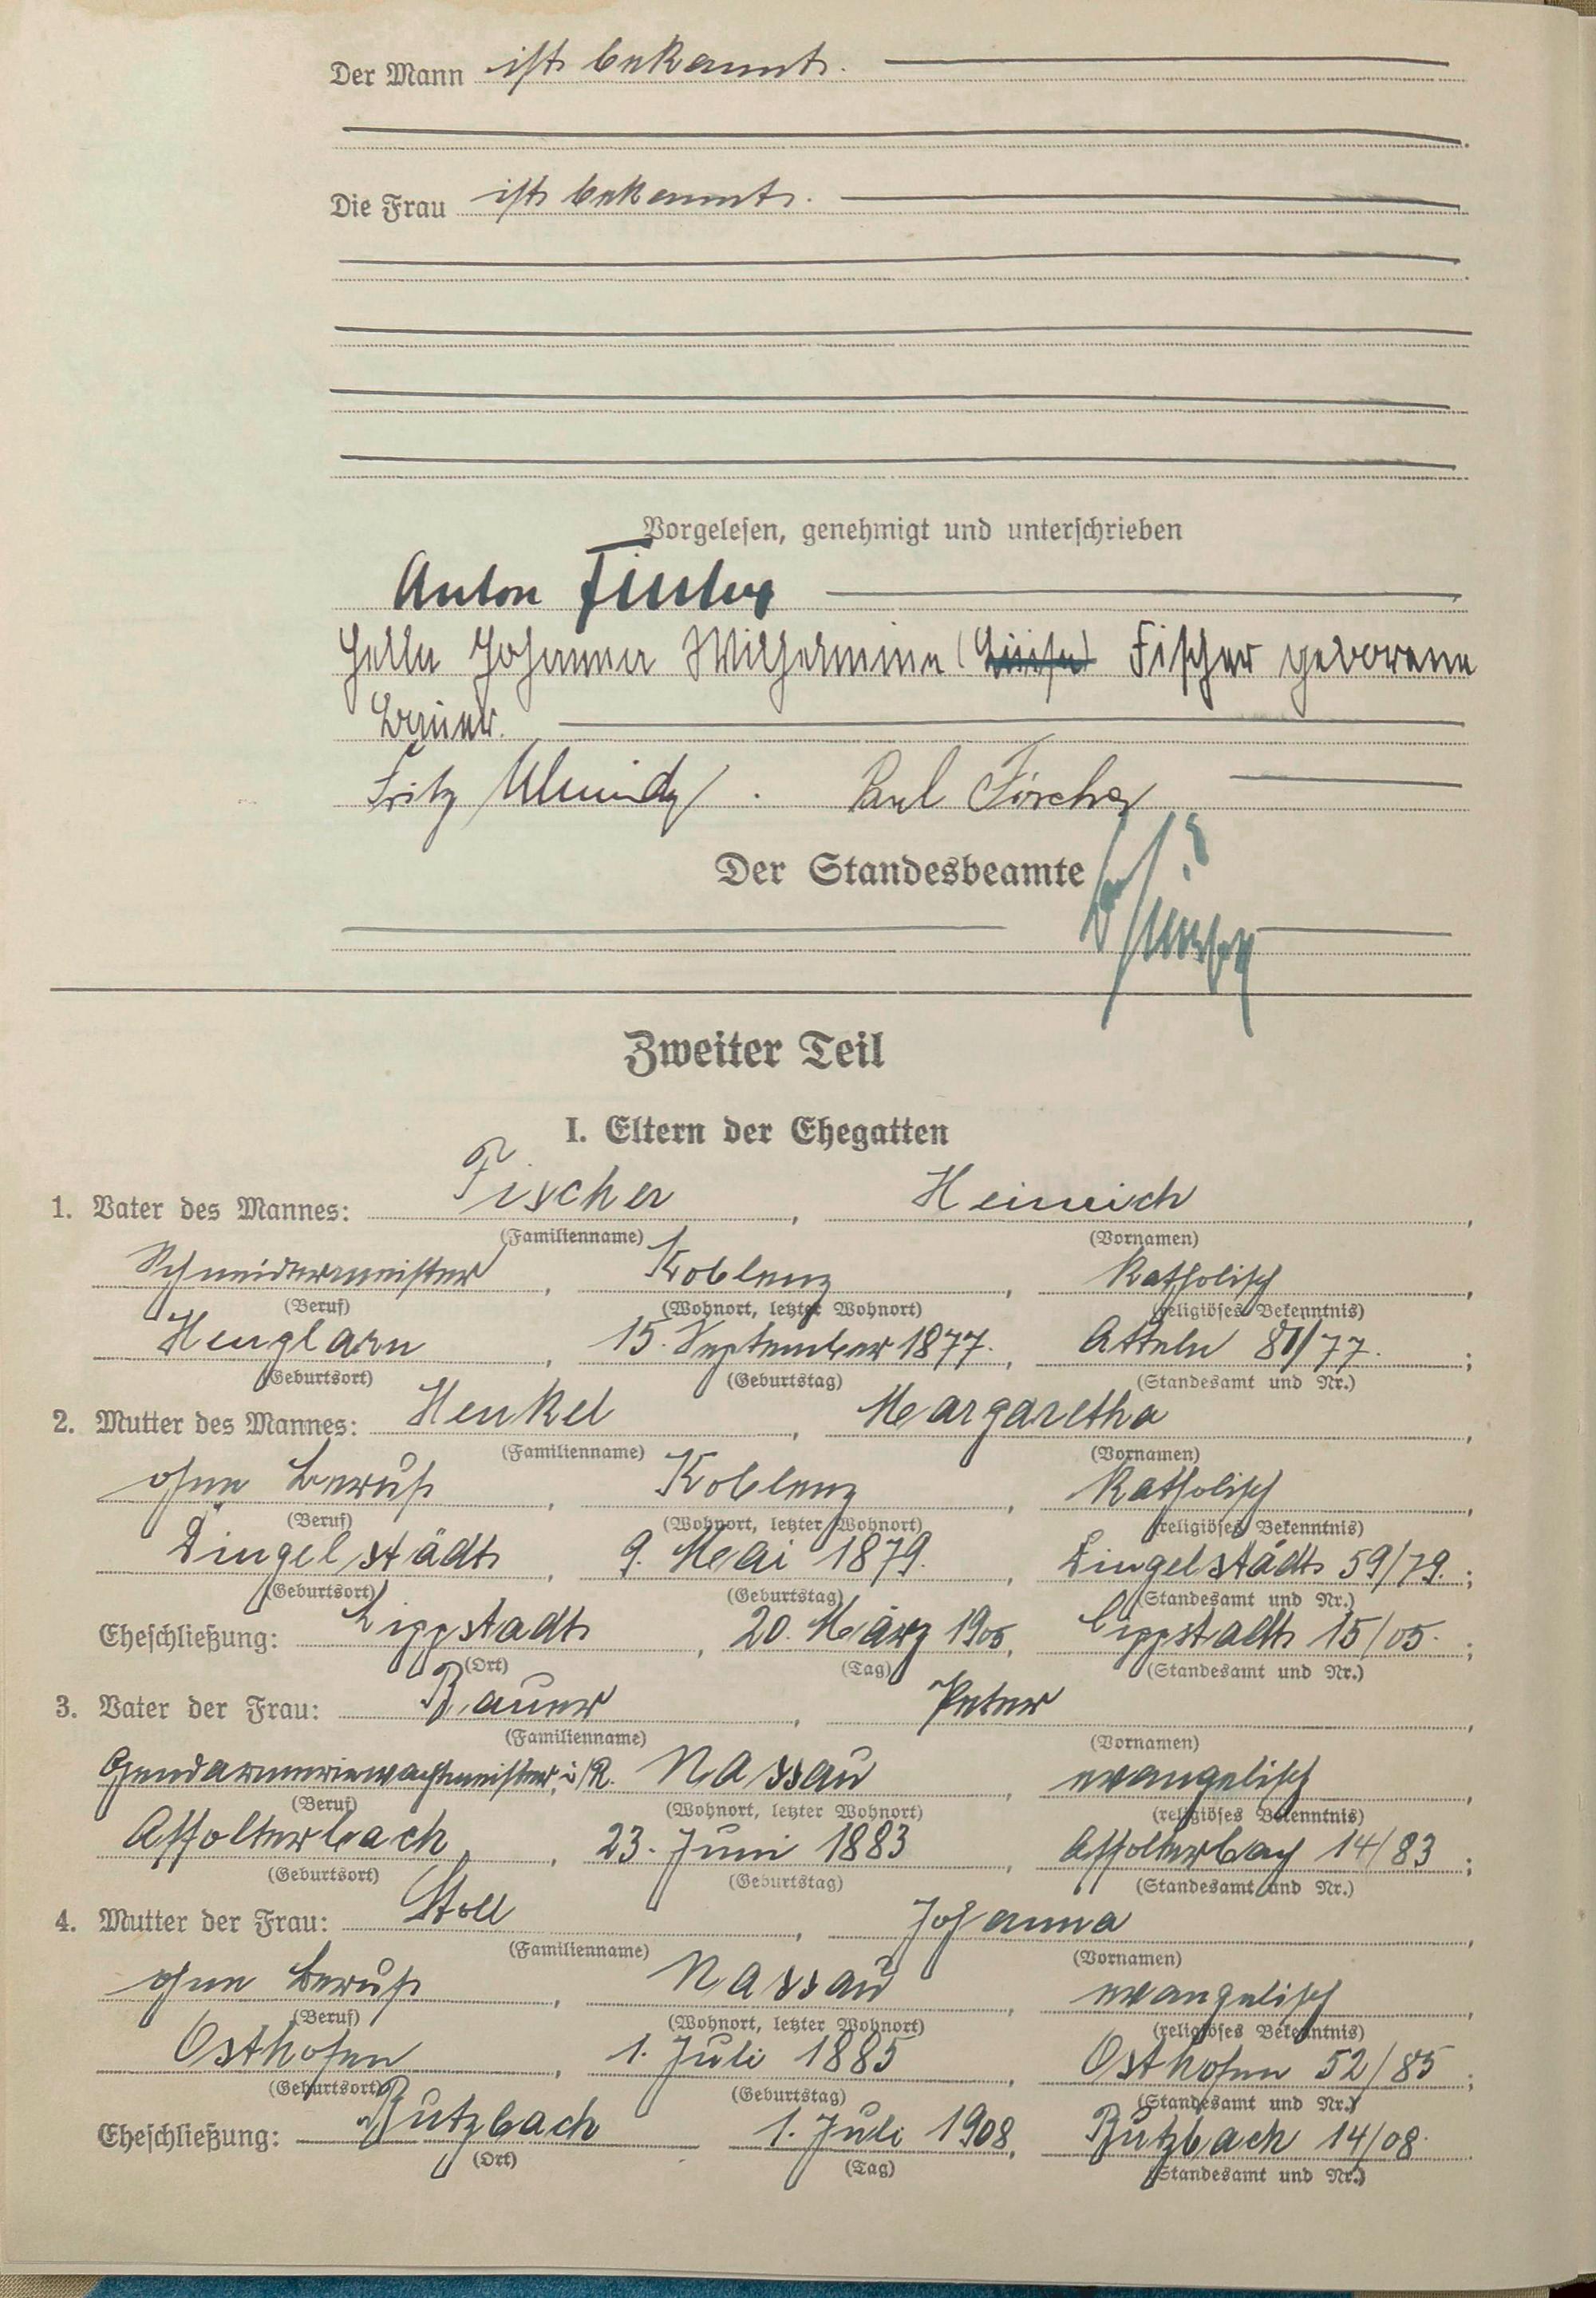 Der Mann ist bekannt.
Die Frau ist bekannt.
Vorgelesen, genehmigt und unterschrieben
Anton Fischer
Hella Johanna Wilhelmine (Luise) Fischer geborene
Bauer.
Fritz . Paul Fischer
Der Standesbeamte
Zweiter Teil
I. Eltern der Ehegatten
1. Vater des Mannes: Fischer, Heinrich,
(Familienname) (Vornamen)
Schneidermeister, Koblenz, katholisch,
(Beruf) (Wohnort, letzter Wohnort) (religiöses Bekenntnis)
Henglarn, 15. September 1877., Atteln 81/77.;
(Geburtsort) (Geburtstag) (Standesamt und Nr.)
2. Mutter des Mannes: Henkel, Margaretha,
(Familienname) (Vornamen)
ohne Beruf, Koblenz, katholisch,
(Beruf) (Wohnort, letzter Wohnort) (religiöses Bekenntnis)
Dingelstädt, 9. Mai 1879., Dingelstädt 59/79.;
(Geburtsort) (Geburtstag) (Standesamt und Nr.)
Eheschließung: Lippstadt, 20. März 1905, Lippstadt 15/05.;
(Ort) (Tag) (Standesamt und Nr.)
3. Vater der Frau: Bauer, Peter,
(Familienname) (Vornamen)
Gendarmeriewachtmeister i/R. Nassau, evangelisch,
(Beruf) (Wohnort, letzter Wohnort) (religiöses Bekenntnis)
Affolterbach, 23. Juni 1883, Affolterbach 14/83;
(Geburtsort) (Geburtstag) (Standesamt und Nr.)
4. Mutter der Frau: Stoll, Johanna,
(Familienname) (Vornamen)
ohne Beruf, Nassau, evangelisch,
(Beruf) (Wohnort, letzter Wohnort) (religiöses Bekenntnis)
Osthofen, 1. Juli 1885, Osthofen 52/85;
(Geburtsort) (Geburtstag) (Standesamt und Nr.)
Eheschließung: Butzbach 1. Juli 1908, Butzbach 14/08.
(Ort) (Tag) (Standesamt und Nr.)